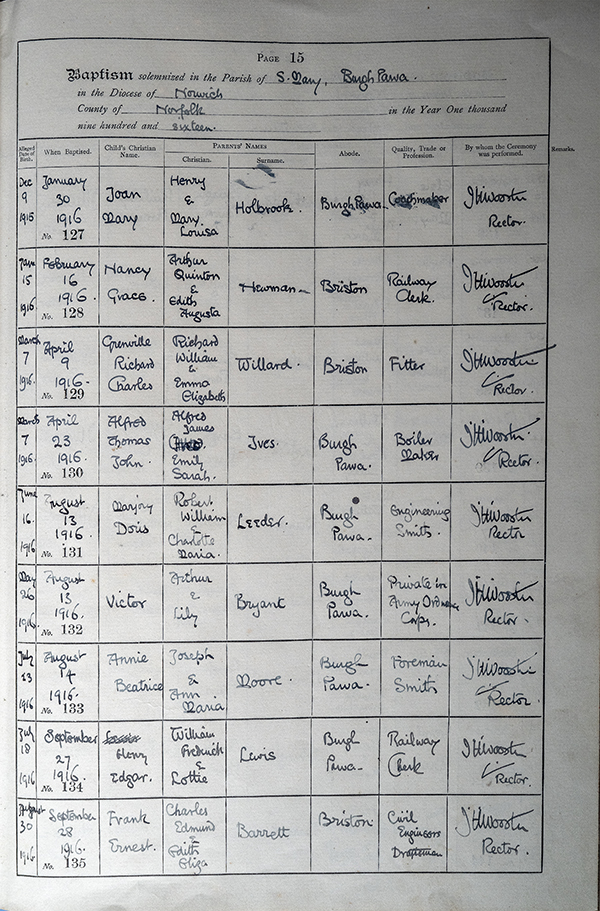 PAGE 15
Baptism solemnized in the Parish of S. Mary, Burgh Parva.
in the Diocese of Norwich
County of Norfolk in the Year One thousand
nine hundred and sixteen.
Alleged Date of Birth. When Baptized. Child's Christian Name. PARENTS' NAMES Christian. Surname. Abode. Quality, Trade or Profession. By whom the Ceremony was performed. Remarks.
Dec 9 1915 January 30 1916 No. 127 Joan Mary Henry & Mary Louisa Holbrook. Burgh Parva. Coachmaker Rector.
Jan 15 1916 February 16 1916. No. 128 Nancy Grace. Arthur Quinton & Edith Augusta Newman Briston Railway Clerk. Rector.
March 7 1916. April 9 1916. No. 129 Grenville Richard Charles Richard William & Emma Elizabeth Willard. Briston Fitter Rector.
March 7 1916. April 23 1916. No. 130 Alfred Thomas John. Alfred James Emily Sarah. Ives. Burgh Parva. Boiler Maker Rector.
June 16. 1916 August 13 1916. No. 131 Marjory Doris Robert William & Charlotte Maria. Leeder. Burgh Parva. Engineering Smith. Rector
May 26 1916. August 13 1916. No. 132 Victor Arthur & Lily Bryant Burgh Parva. Private in Army Ordnance Corps. Rector.
July 23 1916 August 14 1916. No. 133 Annie Beatrice Joseph & Ann Maria Moore. Burgh Parva. Foreman Smith Rector.
July 18 1916 September 27 1916. No. 134 Henry Edgar. William Frederick & Lottie Lewis Burgh Parva. Railway Clerk Rector.
August 30 1916 September 28 1916. No. 135 Frank Ernest. Charles Edmund & Edith Eliza Barrett Briston. Civil Engineers Draftsman Rector.